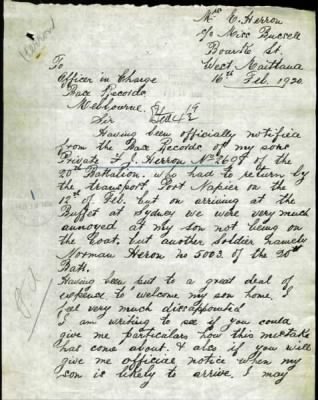 Mrs E. Herron
c/o Miss
Bourke St.
West Maitland
16th Feb. 1920.
To
Officer in Charge
Base Records.
Melbourne.
Sir
Having been officially notified
from the Base Records, of my sons
Private F. J. Herron No 269 of the
20th Battalion. who had to return by
the transport, Port Napier on the
12th of Feb. but on arriving at the
Buffet at Sydney we were very much
annoyed at my son not being on
the boat, but another Soldier namely
Norman Heron no 5003. of the 20th
Batt.
Having been put to a great deal of
expense to welcome my son home. I
feel very much dissapointed
I am writing to see if you could
give me particulars how this mistake
has come about. & also if you will
give me official notice when my
son is likely to arrive. I may